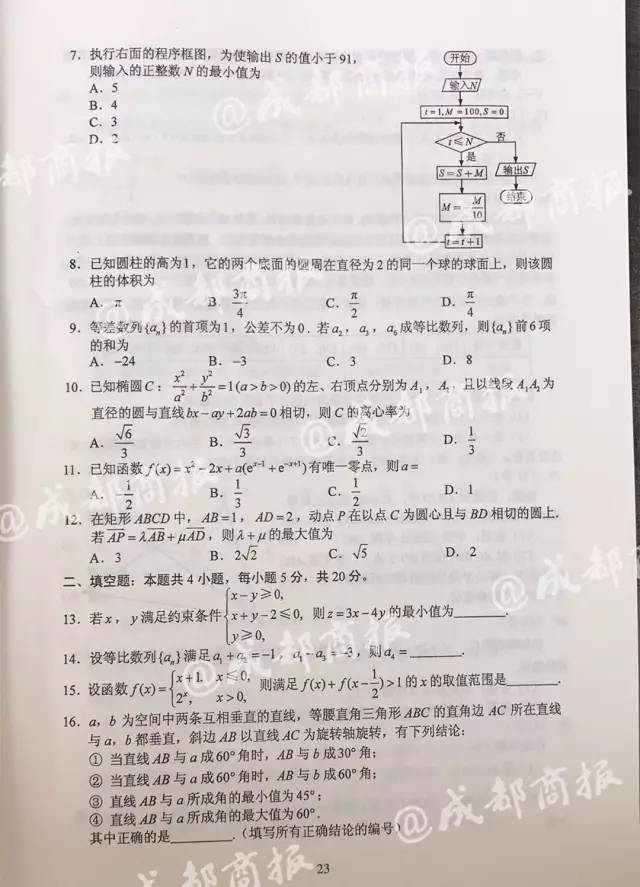 7. 执行右面的程序框图，为使输出 S 的值小于 91，
则输入的正整数 N 的最小值为
A. 5
B. 4
C. 3
D. 2
开始
输入N
t=1,M=100,S=0
t≤N
否
是
输出S
S=S+M
结束
M=-M/10
t=t+1
8. 已知圆柱的高为1，它的两个底面的圆周在直径为 2 的同一个球的球面上，则该圆
柱的体积为
A. π B. 3π/4 C. π/2 D. π/4
9. 等差数列{aₙ}的首项为1，公差不为0．若a₂，a₃，a₆成等比数列，则{aₙ}前6项
的和为
A. -24 B. -3 C. 3 D. 8
10. 已知椭圆 C：x²/a²+y²/b²=1(a>b>0)的左、右顶点分别为A₁，A₂，且以线段A₁A₂为
直径的圆与直线bx-ay+2ab=0相切，则 C 的离心率为
A. √6/3 B. √3/3 C. √2/3 D. 1/3
11. 已知函数f(x)=x²-2x+a(eˣ⁻¹+e⁻ˣ⁺¹)有唯一零点，则a=
A. -1/2 B. 1/3 C. 1/2 D. 1
12. 在矩形 ABCD 中，AB=1，AD=2，动点 P 在以点 C 为圆心且与 BD 相切的圆上．
若AP=λAB+μAD，则λ+μ的最大值为
A. 3 B. 2√2 C. √5 D. 2
二、填空题：本题共 4 小题，每小题 5 分，共 20 分。
13. 若x，y满足约束条件{x-y≥0, x+y-2≤0, y≥0, 则z=3x-4y的最小值为________.
14. 设等比数列{aₙ}满足a₁+a₂=-1，a₁-a₃=-3，则a₄=________.
15. 设函数f(x)={x+1, x≤0, 2ˣ, x>0, 则满足f(x)+f(x-1/2)>1的x的取值范围是________.
16. a，b 为空间中两条互相垂直的直线，等腰直角三角形 ABC 的直角边 AC 所在直线
与 a，b 都垂直，斜边 AB 以直线 AC 为旋转轴旋转，有下列结论：
① 当直线 AB 与 a 成60°角时，AB 与 b 成30°角；
② 当直线 AB 与 a 成60°角时，AB 与 b 成60°角；
③ 直线 AB 与 a 所成角的最小值为45°；
④ 直线 AB 与 a 所成角的最大值为60°．
其中正确的是________.（填写所有正确结论的编号）
23
@成都商报
@成都商报
@成都商报
@成都商报
@成都商报
@成都商报